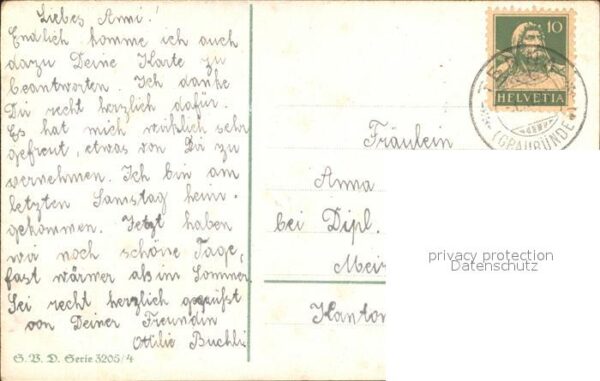 Liebes Anni!
Endlich komme ich auch
dazu Deine Karte zu
beantworten. Ich danke
Dir recht herzlich dafür.
Es hat mich wirklich sehr
gefreut, etwas von Dir zu
vernehmen. Ich bin am
letzten Samstag heim-
gekommen. Jetzt haben
wir noch schöne Tage,
fast wärmer als im Sommer.
Sei recht herzlich gegrüsst
von Deiner Freundin
Ottilie Buchli
S.B.D. Serie 3205/4
10
HELVETIA
(GRAUBÜNDEN)
Fräulein
Anna
bei Dipl.
Mei
Kanton
privacy protection
Datenschutz